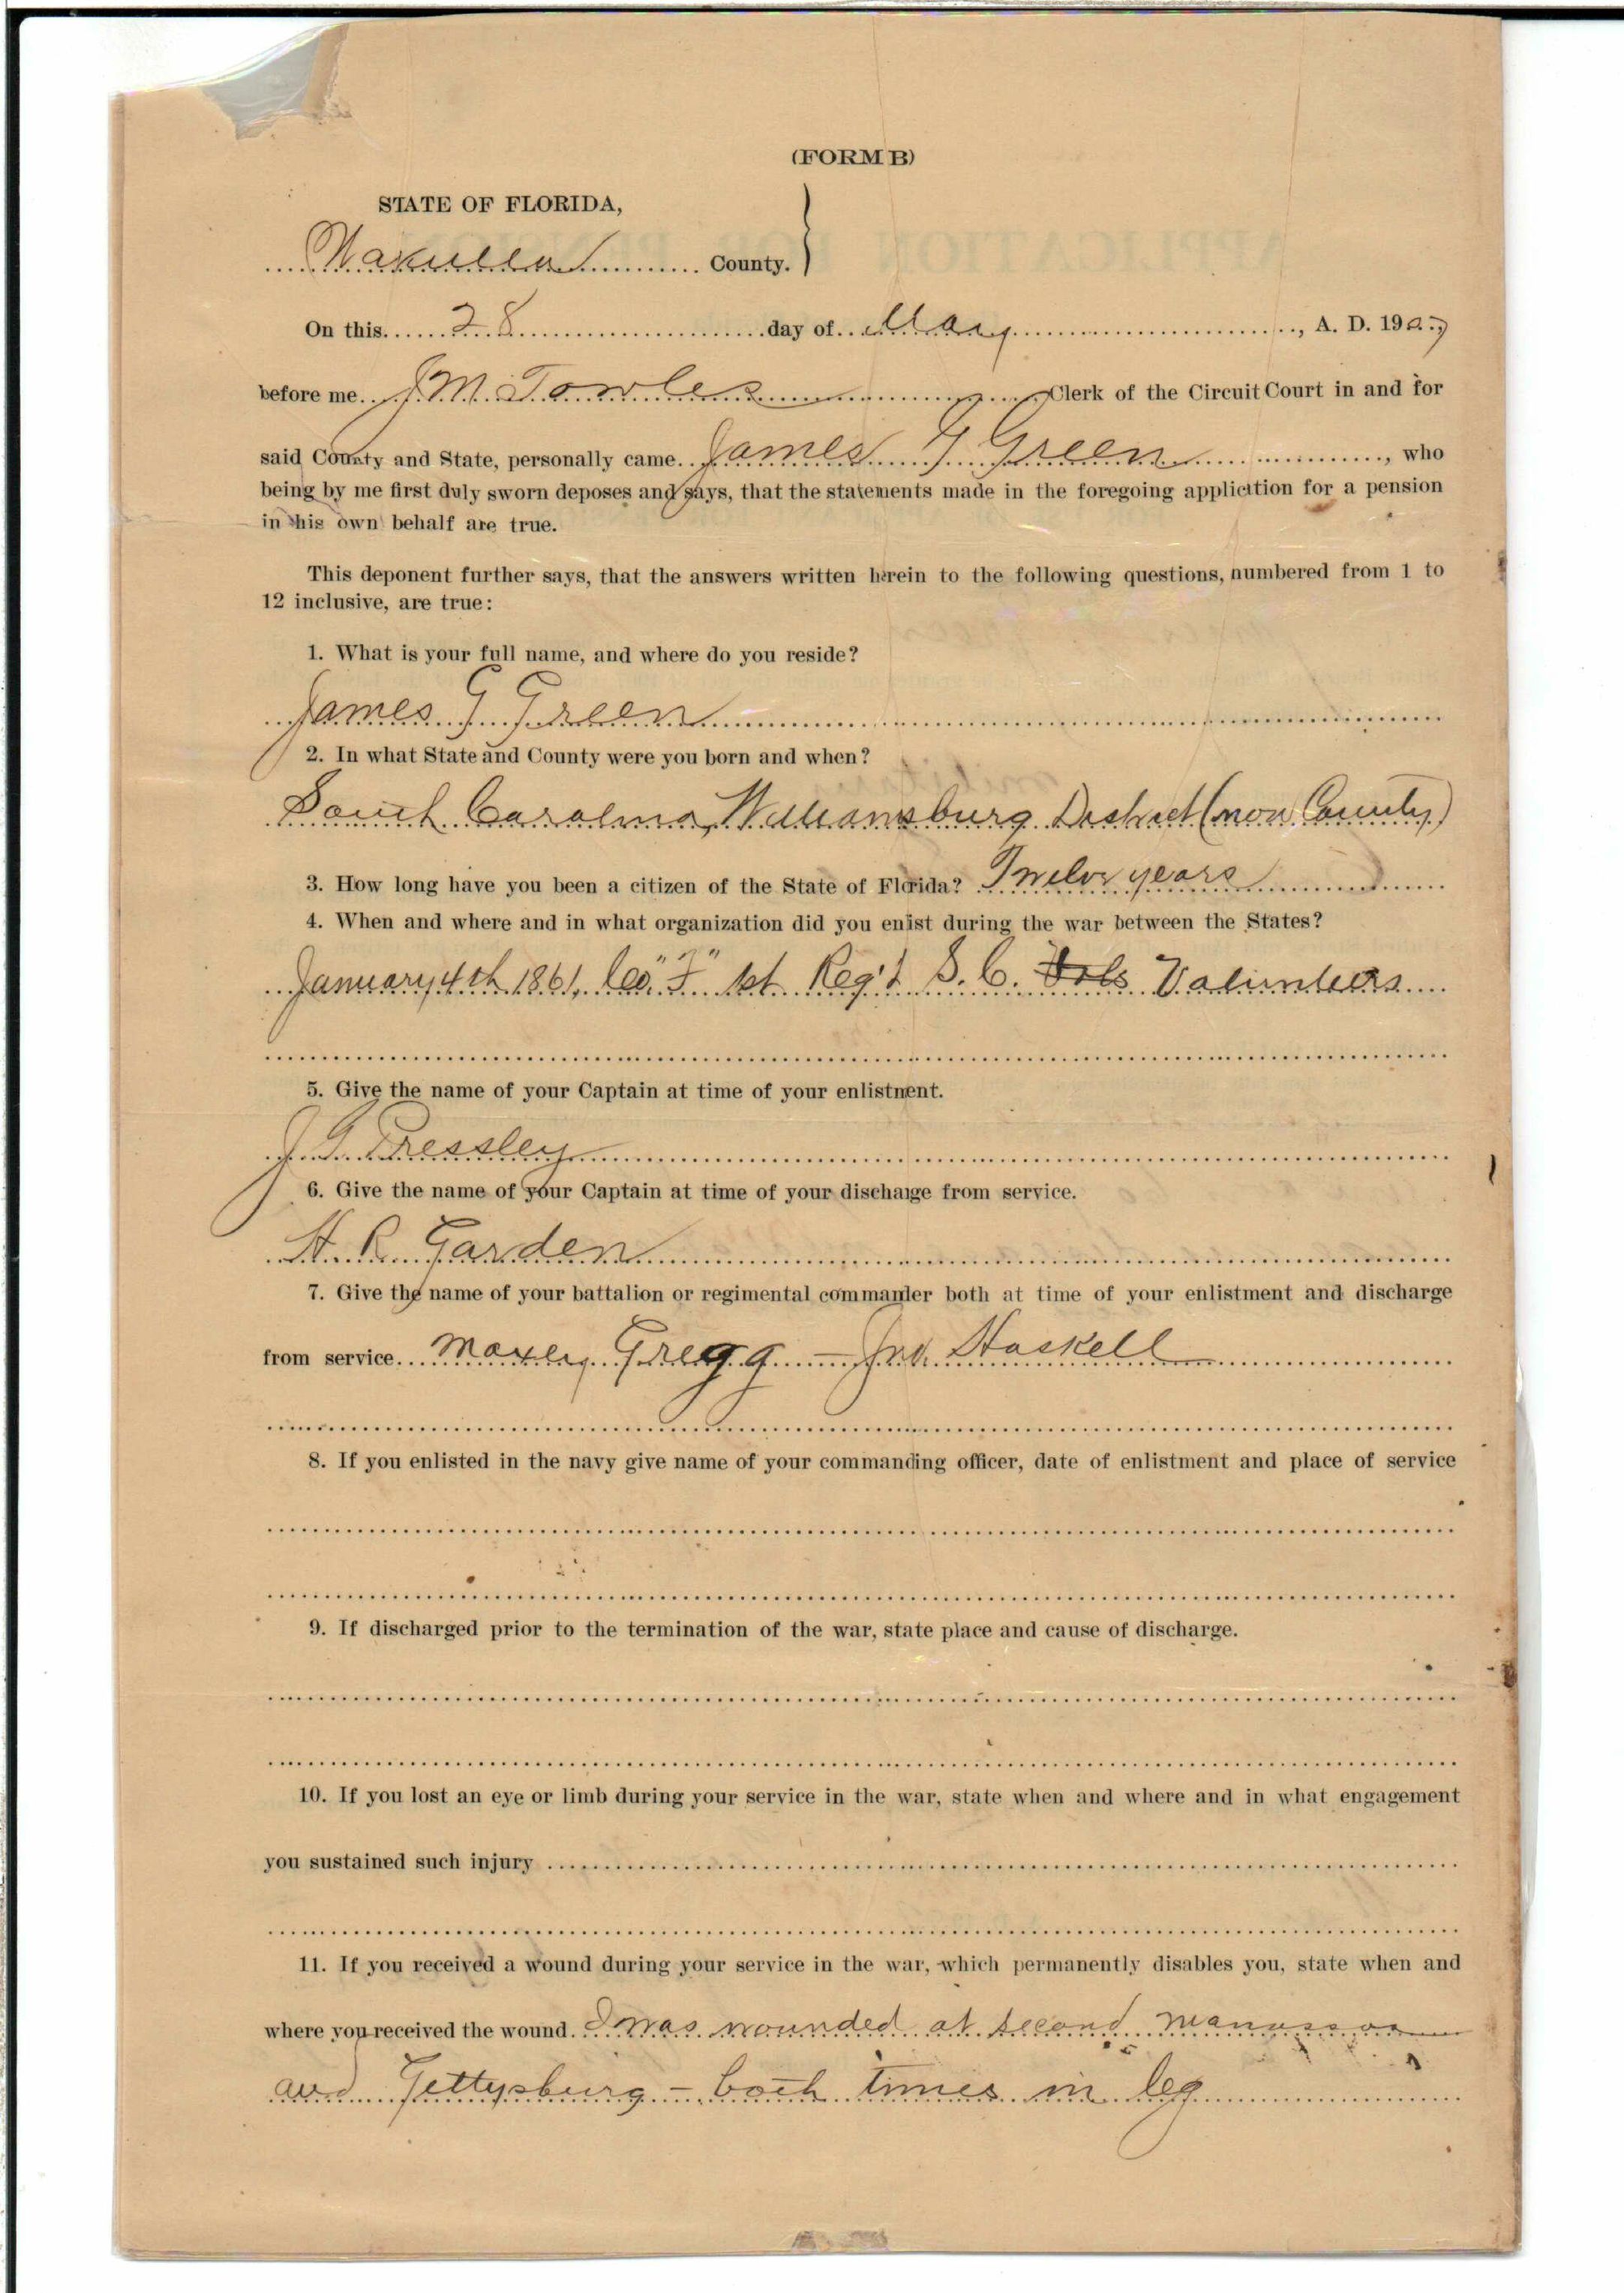 (FORM B)
STATE OF FLORIDA,
Wakulla County.
On this 28 day of May, A. D. 1907
before me J M Towles Clerk of the Circuit Court in and for
said County and State, personally came James G Green, who
being by me first duly sworn deposes and says, that the statements made in the foregoing application for a pension
in his own behalf are true.
This deponent further says, that the answers written herein to the following questions, numbered from 1 to
12 inclusive, are true:
1. What is your full name, and where do you reside?
James G Green
2. In what State and County were you born and when?
South Carolina, Williamsburg District (now County)
3. How long have you been a citizen of the State of Florida? Twelve years
4. When and where and in what organization did you enlist during the war between the States?
January 4th 1861, Co. "F" 1st Reg't S. C. Vols Volunteers
5. Give the name of your Captain at time of your enlistment.
J. G. Pressley
6. Give the name of your Captain at time of your discharge from service.
H. R. Garden
7. Give the name of your battalion or regimental commander both at time of your enlistment and discharge
from service Maxey Gregg — Jno. Haskell
8. If you enlisted in the navy give name of your commanding officer, date of enlistment and place of service
9. If discharged prior to the termination of the war, state place and cause of discharge.
10. If you lost an eye or limb during your service in the war, state when and where and in what engagement
you sustained such injury
11. If you received a wound during your service in the war, which permanently disables you, state when and
where you received the wound. I was wounded at second Manassas
and Gettysburg - both times in leg